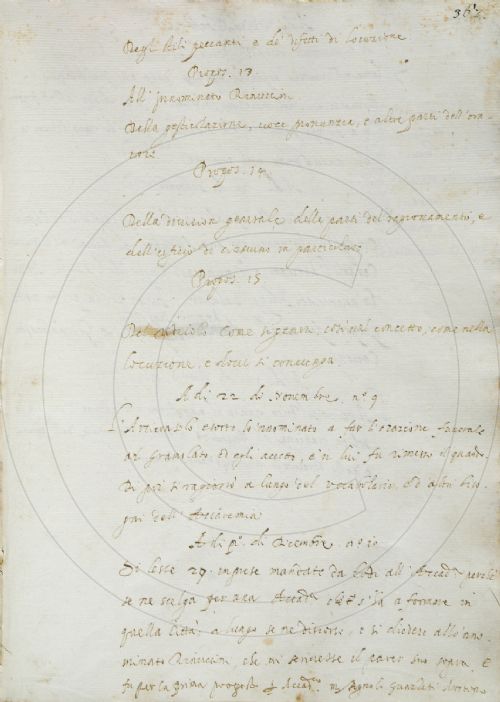 367
Degl' stili peccanti e de' difetti di locuzione
Propos. 13
All' Innominato Rinuccin
Della gesticolazione, voce pronunzia, e altre parti dell' ora-
tore
Propos. 14
Della division generale delle parti del ragionamento, e
dell' efizio di ciascuno in particulare
Propos. 15
Del ridicolo come si genera, così nel concetto, come nella
locuzione, e dove si convegga
A di 22 di Novembre n.º 9
L' Arciconsolo esortò lo 'nnominato a far l' orazione funerale
al Gramolato ed egli accettò, e 'n lui fu rimesso il quando
Di poi si ragionò a lungo del Vocabolario, ed altri biso-
gni dell' Accademia
A di p.º di Dicembre n.º 10
Si lesse 29 imprese mandate da all' Accad.ª perché
se ne scelga per una Accad.ª che s' ha a formare in
quella Città; a lungo se ne discorse, e si chiedere allo 'nno-
minato Rinuccin, che ne scrivesse il parer suo sopra. E
fu per la prima proposto Accad.º